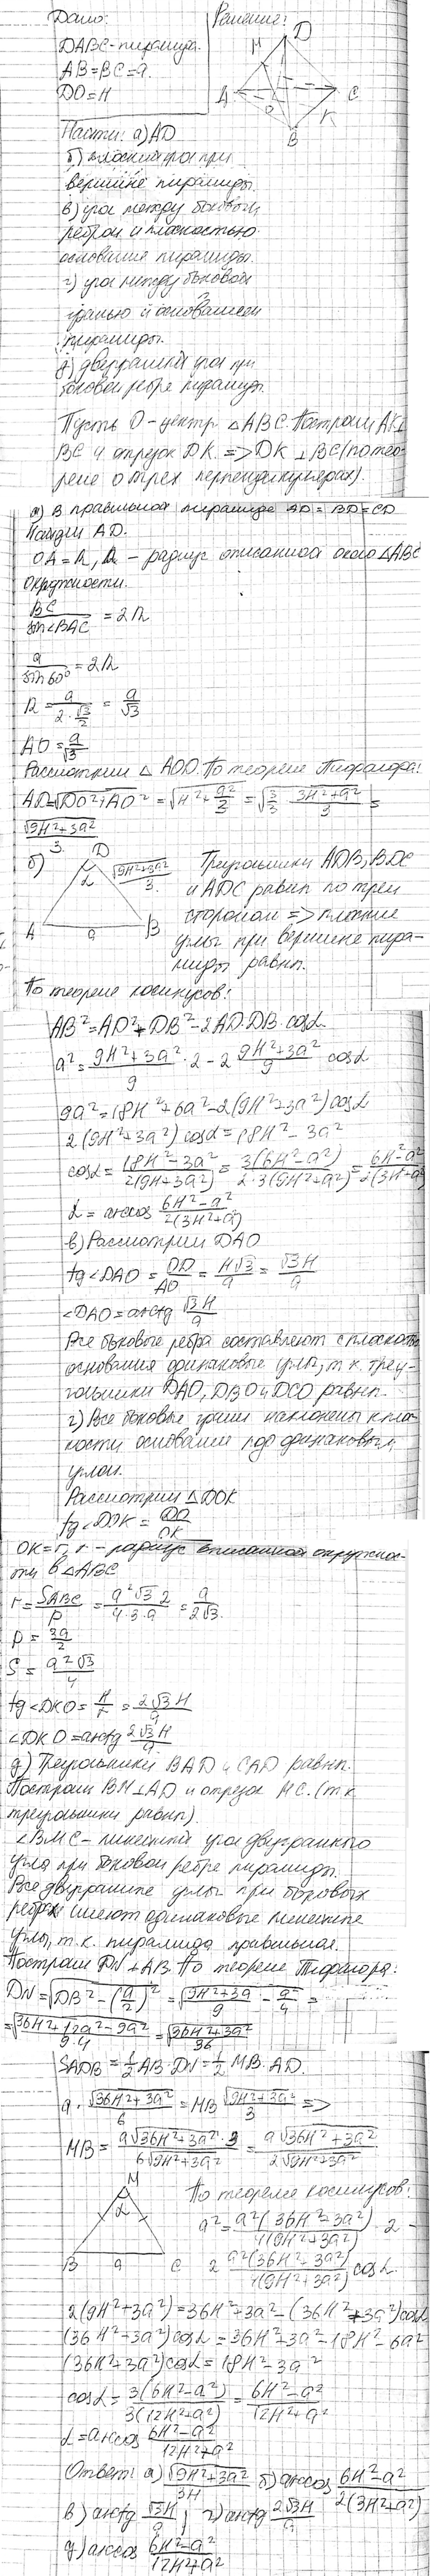 Дано:
DABC-пирамида.
AB=BC=a.
DO=H
Решение:
M D
A C
O K
B
Найти: а) AD
б) плоский угол при
вершине пирамиды.
в) угол между боковым
ребром и плоскостью
основания пирамиды.
г) угол между боковой
гранью и основанием
пирамиды.
д) двугранный угол при
боковом ребре пирамиды.
Пусть O-центр △ABC. Построим AK⊥
BC и отрезок DK. => DK ⊥ BC (по тео-
реме о трех перпендикулярах).
а) В правильной пирамиде AD = BD = CD
Найдем AD.
OA=R, R - радиус описанной около △ABC
окружности.
BC/sin∠BAC = 2R
a/sin60° = 2R
R = a/(2·√3/2) = a/√3
AO = a/√3
Рассмотрим △ AOD. По теореме Пифагора:
AD=√(DO²+AO²) = √(H²+a²/3) = √(3/3 · (3H²+a²)/3) =
√(9H²+3a²)/3
б) D
α √(9H²+3a²)/3
A a B
Треугольники ADB, BDC
и ADC равны по трем
сторонам => плоские
углы при вершине пира-
миды равны.
По теореме косинусов:
AB²=AD²+DB²-2AD·DB·cosα
a²=(9H²+3a²)/9 · 2 - 2 (9H²+3a²)/9 cosα
9a²=18H²+6a²-2(9H²+3a²)cosα
2(9H²+3a²)cosα=18H²-3a²
cosα=(18H²-3a²)/(2(9H+3a²)) = 3(6H²-a²)/(2·3(9H²+a²)) = (6H²-a²)/(2(3H²+a²))
α = arccos (6H²-a²)/(2(3H²+a²))
в) Рассмотрим DAO
tg∠DAO = OD/AO = H√3/a = √3H/a
∠DAO=arctg √3H/a
Все боковые ребра составляют с плоскость
основания одинаковые углы, т.к. треу-
гольники DAO, DBO и DCO равны.
г) Все боковые грани наклонены к пло-
скости основания под одинаковым
углом.
Рассмотрим △DOK
tg∠DOK = DO/OK
OK=r, r - радиус вписанной окружнос-
ти в △ABC
r = SABC/p = a²√3·2/(4·3·a) = a/(2√3)
p = 3a/2
S = a²√3/4
tg∠DKO = H/r = 2√3H/a
∠DKO=arctg 2√3H/a
д) Треугольники BAD и CAD равны.
Построим BM⊥AD и отрезок MC. (т.к.
треугольники равны).
∠BMC - линейный угол двугранного
угла при боковом ребре пирамиды.
Все двугранные углы при боковых
ребрах имеют одинаковые линейные
углы, т.к. пирамида правильная.
Построим DN⊥AB. По теореме Пифагора:
DN=√(DB²-(a/2)²) = √((9H²+3a)/9 - a²/4) =
=√((36H²+12a²-9a²)/(9·4)) = √((36H²+3a²)/36)
SADB = 1/2 AB·DN = 1/2 MB·AD.
a·√(36H²+3a²)/6 = MB √(9H²+3a²)/3 =>
MB = a√(36H²+3a²)·3/(6√(9H²+3a²)) = a√(36H²+3a²)/(2√(9H²+3a²))
M
α
B a C
По теореме косинусов:
a²=a²(36H²+3a²)/(4(9H²+3a²)) · 2 -
2 a²(36H²+3a²)/(4(9H²+3a²)) cosα.
2(9H²+3a²)=36H²+3a²-(36H²+3a²)cosα
(36H²+3a²)cosα=36H²+3a²-18H²-6a²
(36H²+3a²)cosα=18H²-3a²
cosα=3(6H²-a²)/(3(12H²+a²)) = (6H²-a²)/(12H²+a²)
α=arccos (6H²-a²)/(12H²+a²)
Ответ: а) √(9H²+3a²)/3H б) arccos (6H²-a²)/(2(3H²+a²))
в) arctg √3H/a; г) arctg 2√3H/a
д) arccos (6H²-a²)/(12H²+a²)